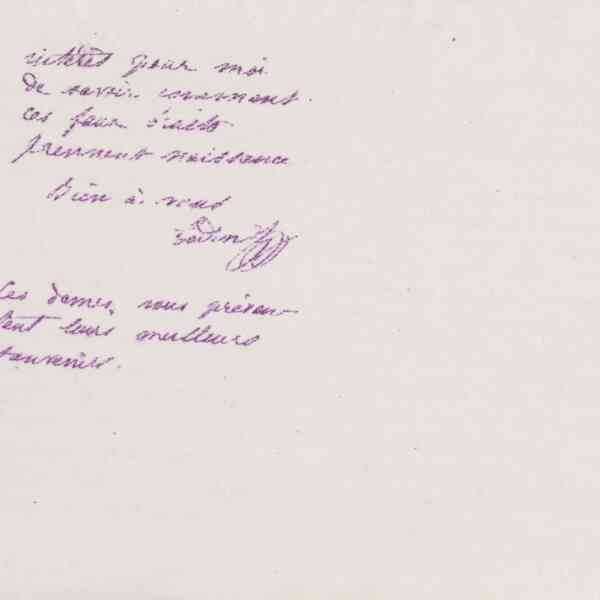 intérêt pour moi
de savoir comment
ces faux traits
prennent naissance
Bien à vous
Ces dames vous présen-
tent leurs meilleurs
souvenirs.